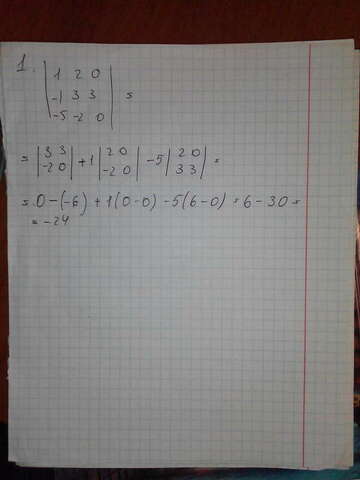 1. | 1 2 0 |
| -1 3 3 | =
| -5 -2 0 |
= | 3 3 | + 1 | 2 0 | - 5 | 2 0 | =
| -2 0 | | -2 0 | | 3 3 |
= 0 - (-6) + 1(0-0) - 5(6-0) = 6 - 30 =
= -24